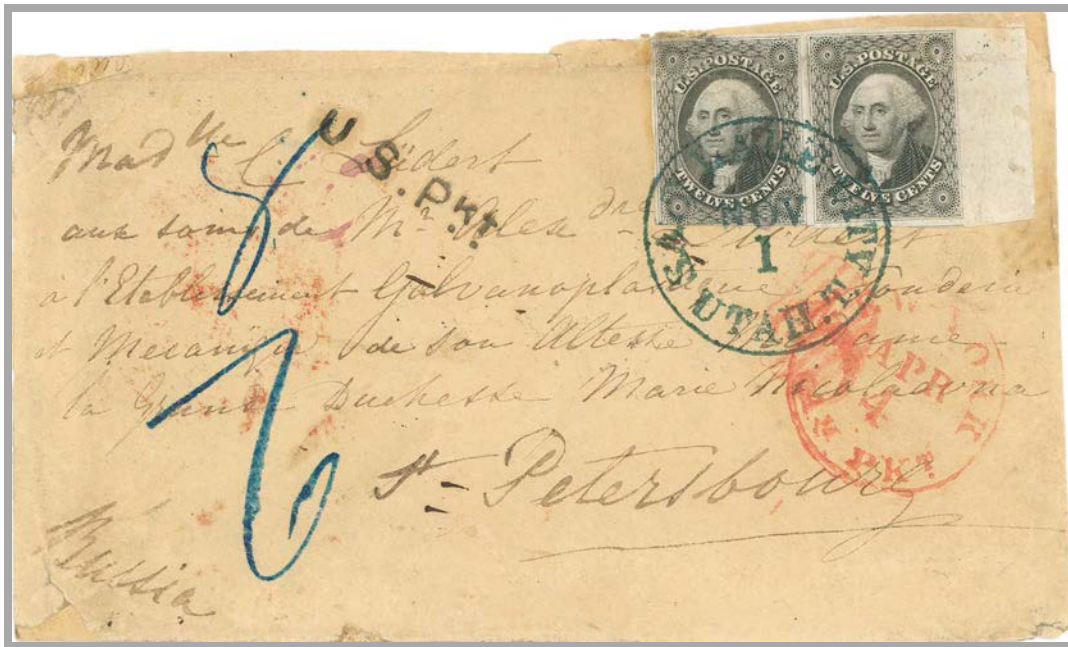 U.S. POSTAGE
TWELVE CENTS
U.S. POSTAGE
TWELVE CENTS
NOV
1
UTAH.T
U S. Pkt
Mad lle C. Lüdert
aux soins de Mr. Alex dre Lüdert
a l'Etablissement Galvanoplastique Fonderie
et Mecanique de son Altesse Madame
la Grande Duchesse Marie Nicolaevna
St- Petersbourg
Russia
APR
PKT.